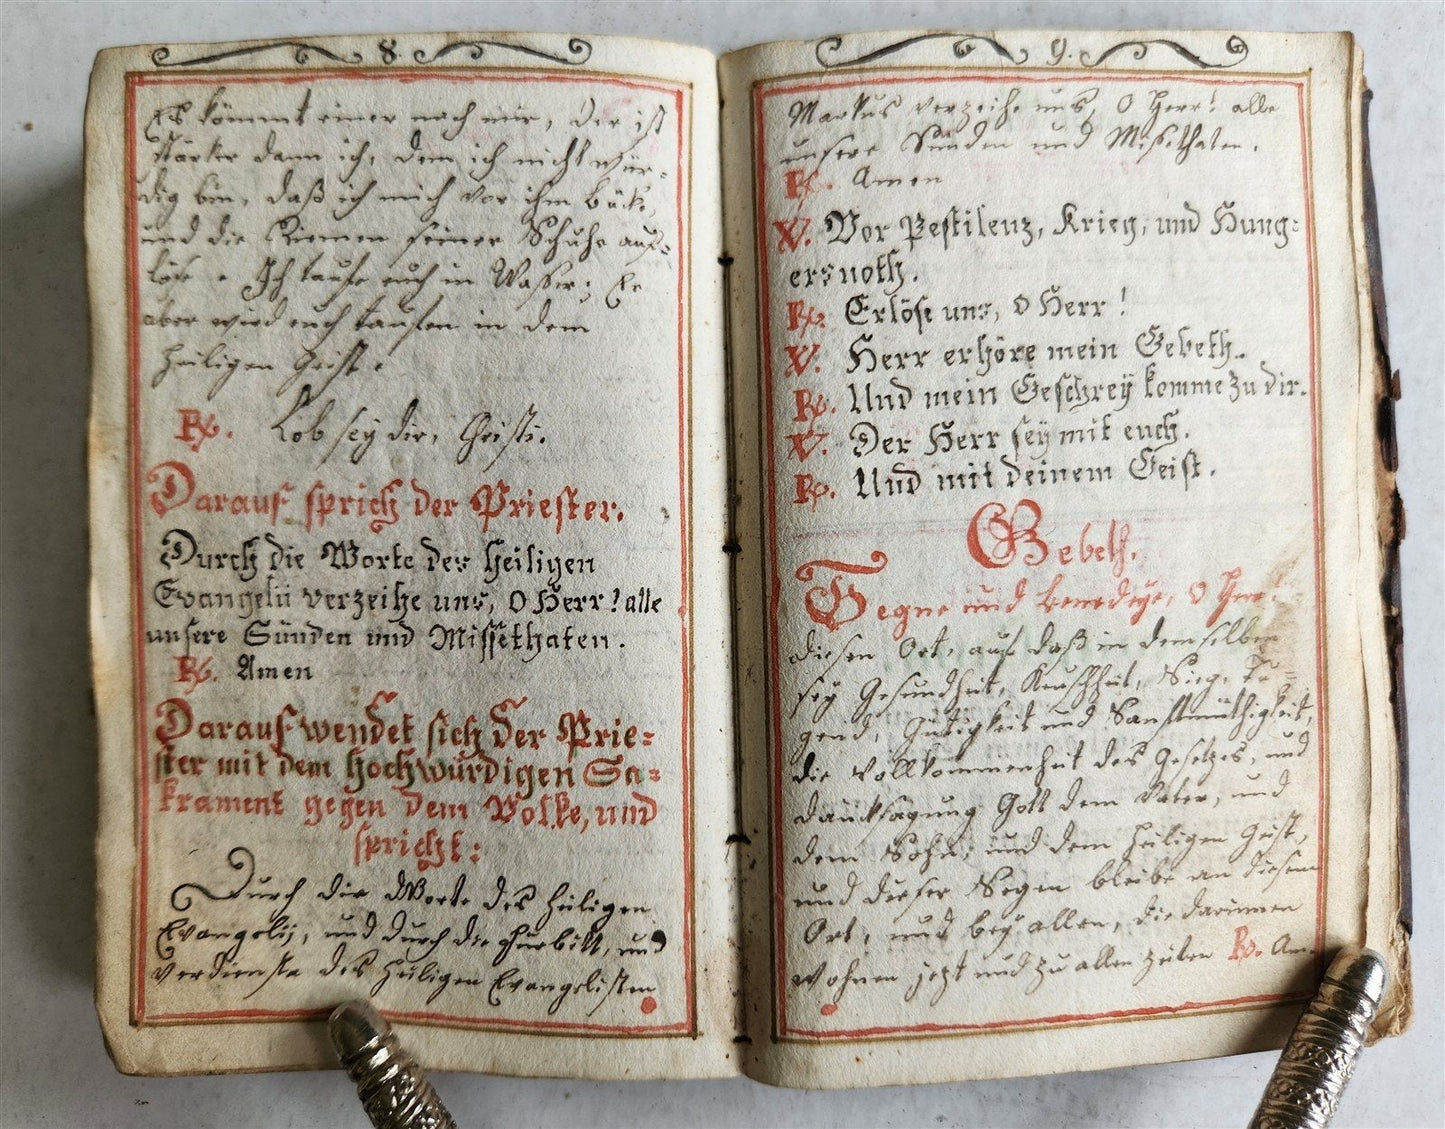 8.
Es kömmt einer nach mir, der ist
stärker dann ich, dem ich nicht wür-
dig bin, daß ich mich vor ihm bücke,
und die Riemen seiner Schuhe auf-
löse. Ich taufe euch in Wasser; Er
aber wird euch taufen in dem
heiligen Geist.
℟. Lob sey dir, Christi.
Darauf sprich der Priester.
Durch die Worte des heiligen
Evangelii verzeihe uns, O Herr! alle
unsere Sünden und Missethaten.
℟. Amen
Darauf wendet sich der Prie=
ster mit dem hochwürdigen Sa=
krament gegen dem Volke, und
spricht:
Durch die Worte des heiligen
Evangelij, und durch die Fürbitt, und
verdienste des heiligen Evangelisten
9.
Markus verzeihe uns, O Herr! alle
unsere Sünden und Missethaten.
℟. Amen
V. Vor Pestilenz, Krieg, und Hung=
ersnoth.
℟. Erlöse uns, O Herr!
V. Herr erhöre mein Gebeth.
℟. Und mein Geschreÿ komme zu dir.
V. Der Herr seÿ mit euch.
℟. Und mit deinem Geist.
Gebeth.
Segne und benedeye, O Herr!
diesen Ort, auf daß in demselben
sey Gesundheit, Keuschheit, Sieg, Tu=
gend, Gütigkeit und Sanftmüthigkeit,
die Vollkommenheit des Gesetzes, und
Danksagung Gott dem Vater, und
dem Sohn, und dem heiligen Geist,
und dieser Segen bleibe an diesem
Ort, und bey allen, die darinnen
wohnen jetzt und zu allen zeiten ℟. Am.